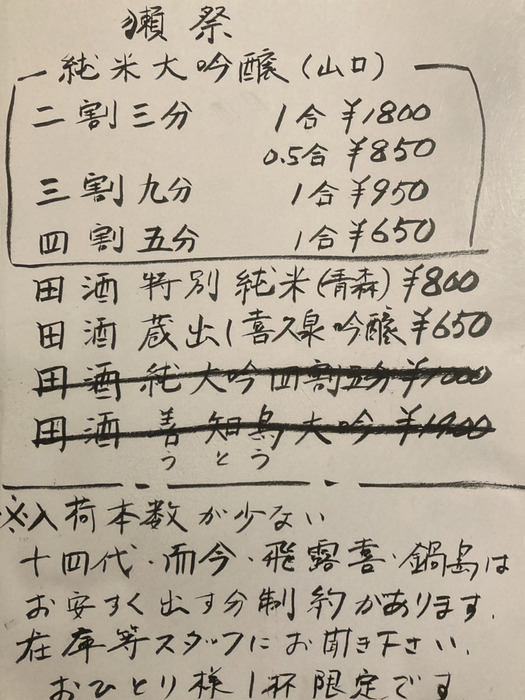 獺祭
純米大吟醸(山口)
二割三分 1合 ¥1800
0.5合 ¥850
三割九分 1合 ¥950
四割五分 1合 ¥650
田酒 特別純米(青森) ¥800
田酒 蔵出し喜久泉吟醸 ¥650
田酒 純大吟四割五分 ¥1000
田酒 善知鳥大吟 ¥1900
うとう
※入荷本数が少ない
十四代・而今・飛露喜・鍋島は
お安すく出す分制約があります。
在庫等スタッフにお聞き下さい。
おひとり様1杯限定です